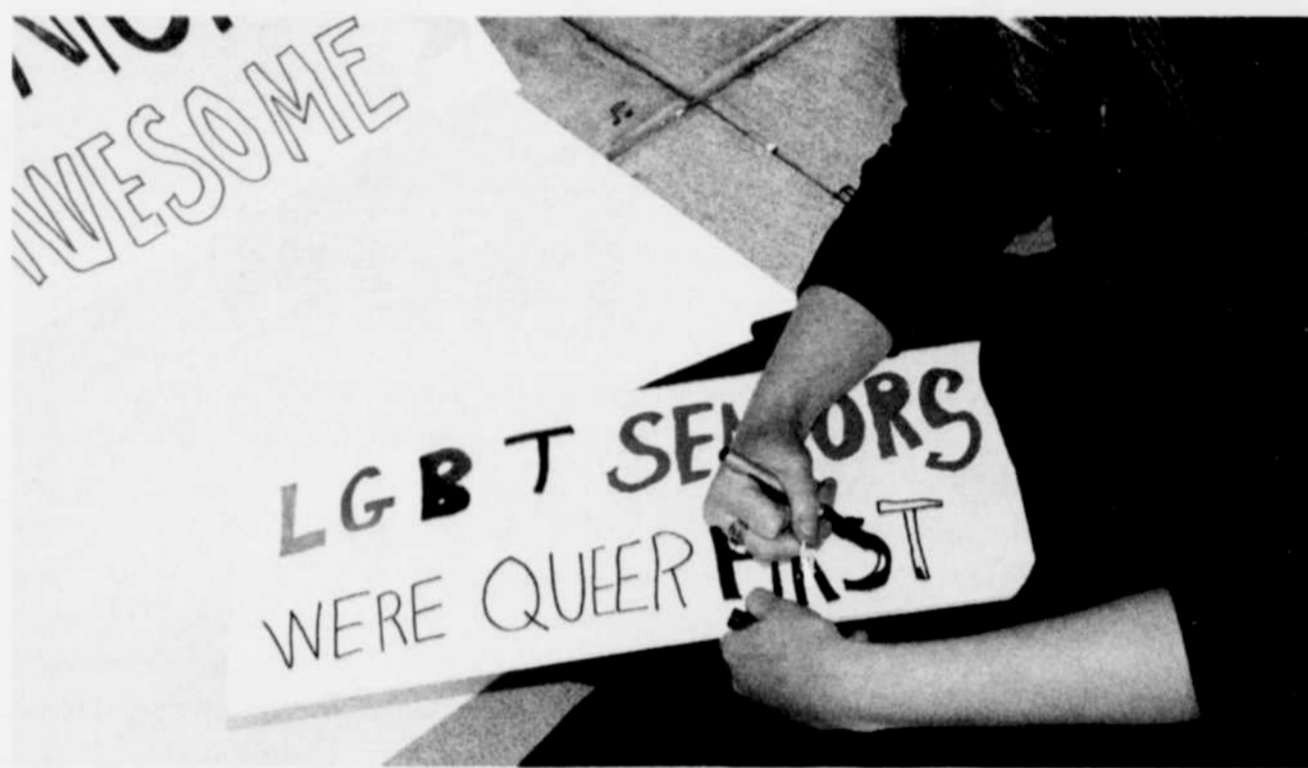 AWESOME
LGBT SENIORS
WERE QUEER FIRST